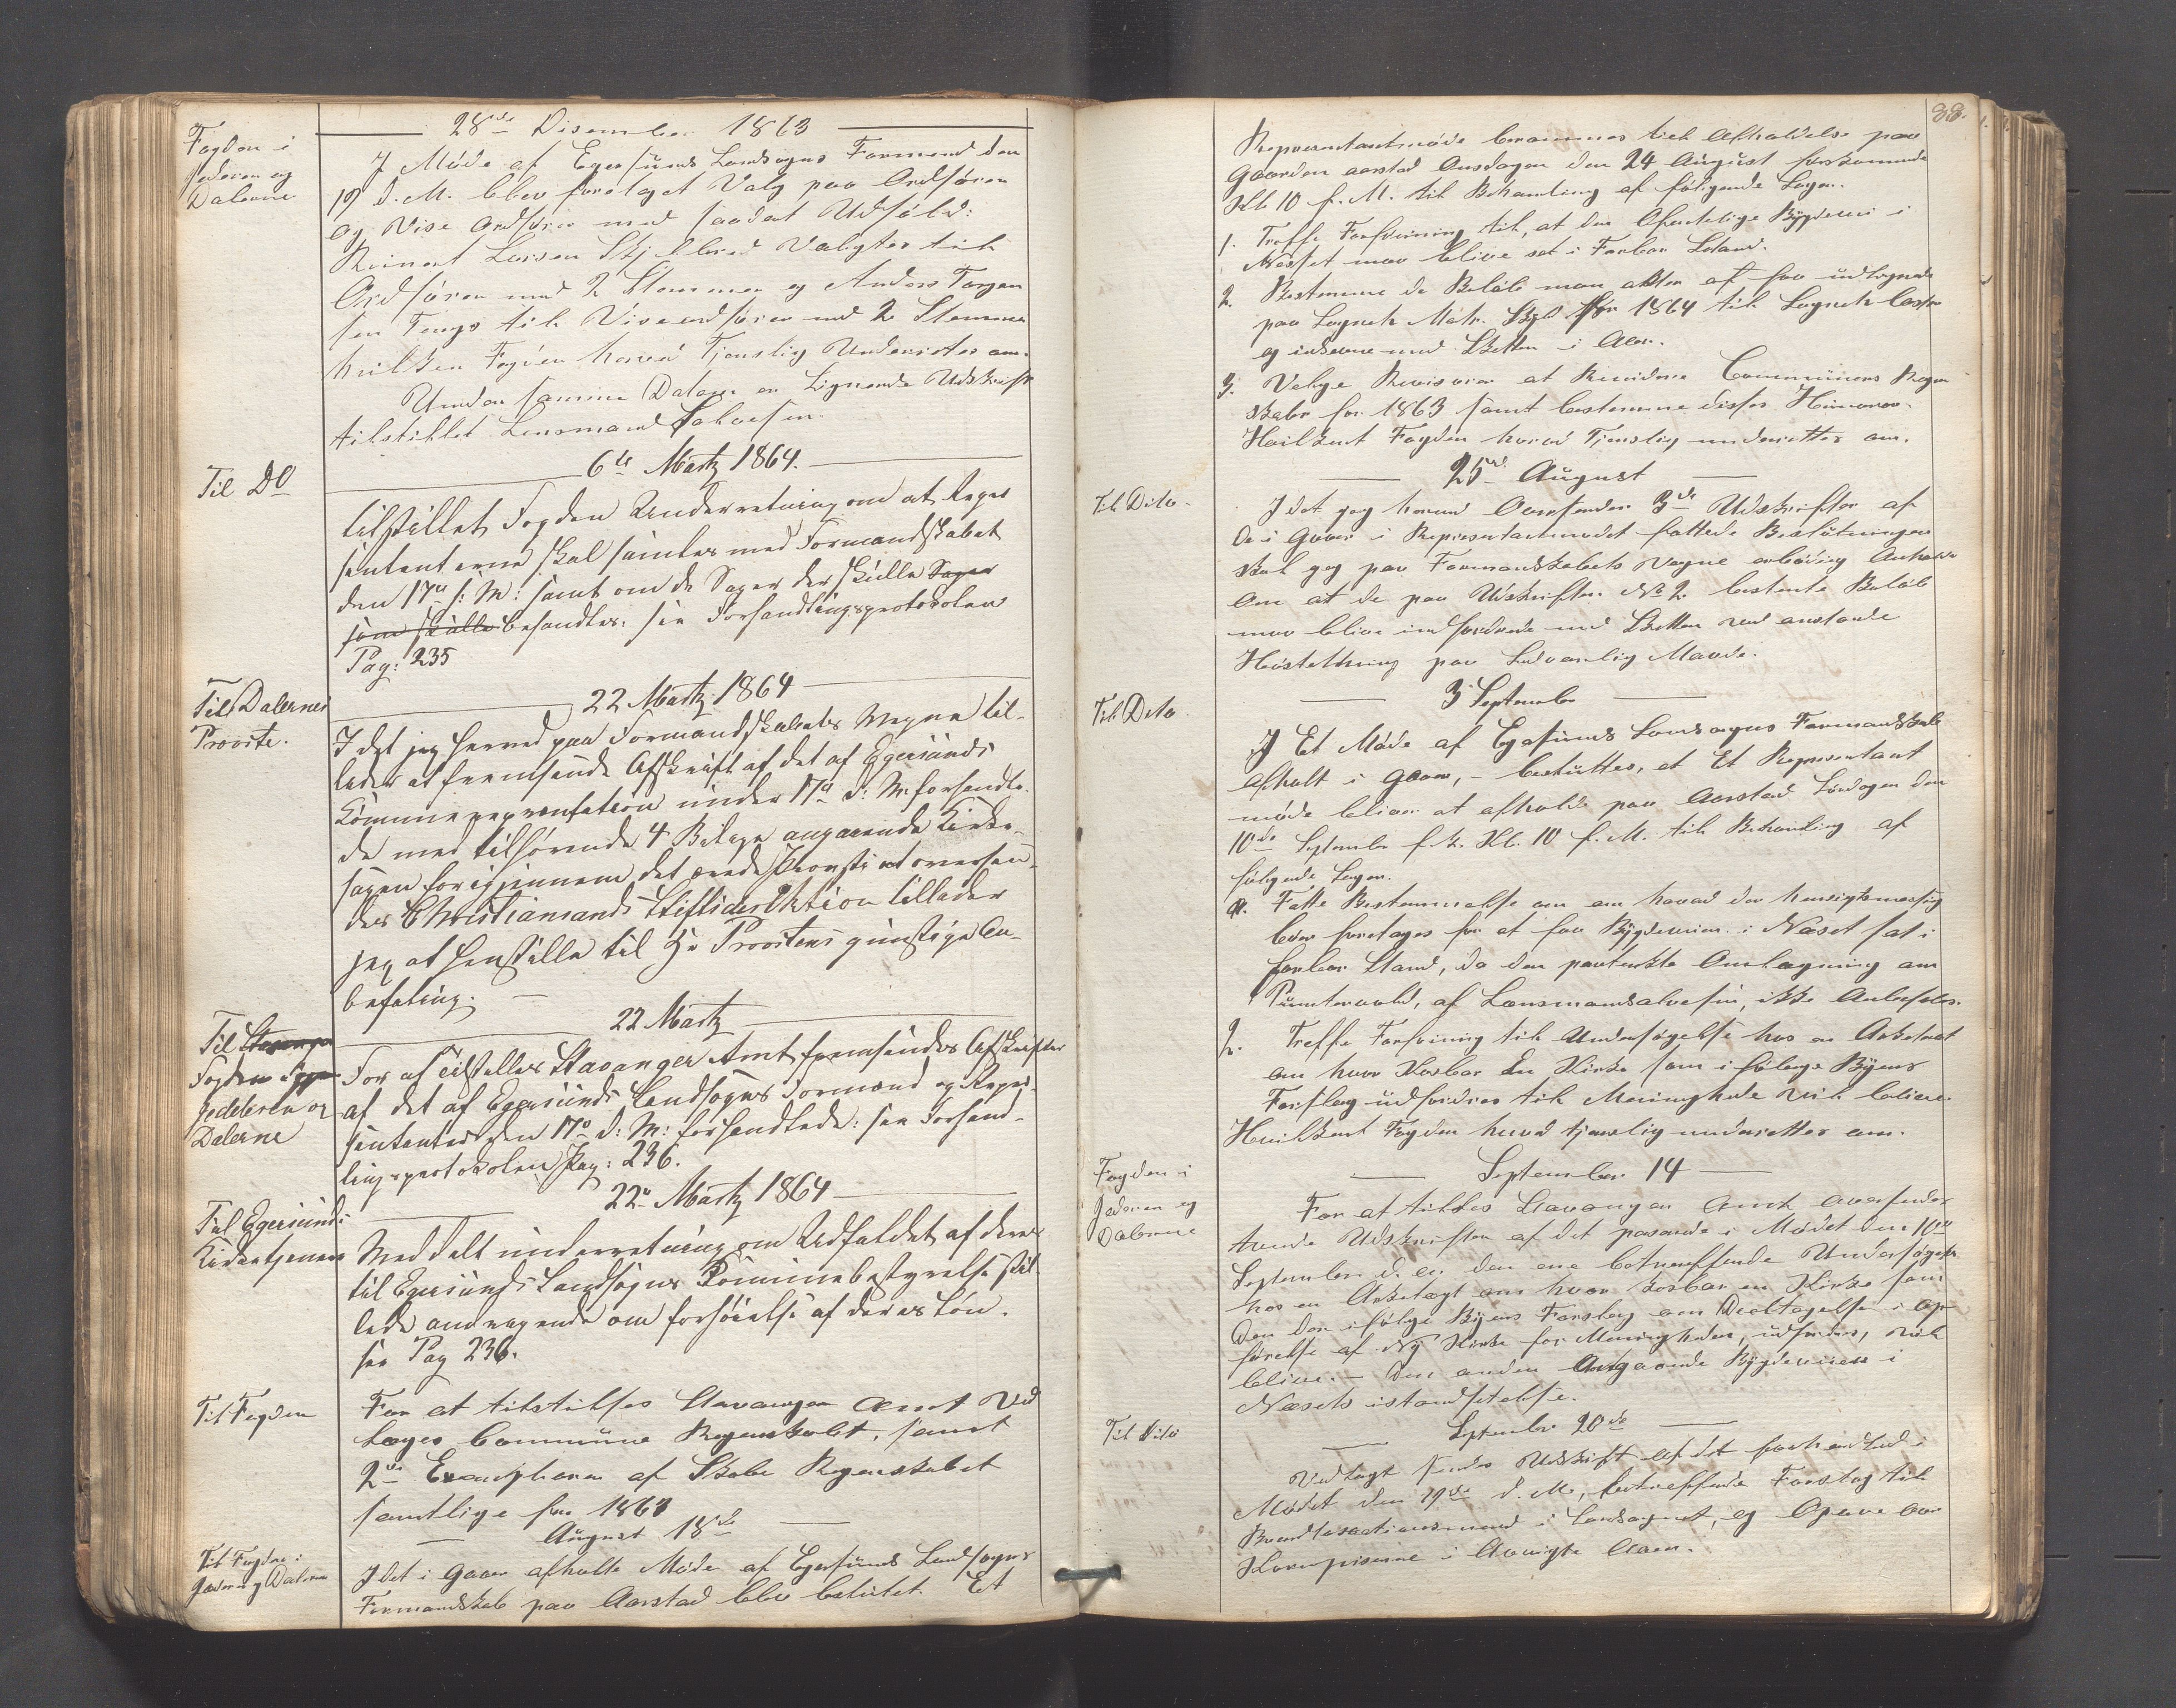 28de Disember 1863
Fogden i
Jederen og
Dalerne
I Møde af Egersunds Landsogns Formend den
19 d. M. blev foretaget Valg paa Ordfører
og Vise Ordfører med saadat Udfald:
Reinert Larsen Skjelbred Valgtes til
Ordfører med 2 Stemmer og Anders Torgers
sen Tengs til Viseordfører med 2 Stemmer
hvilken Fogden herved Tjenslig Underrettes om.
Under samme Datom en Lignende Udskrift
tilstillet Lensmand Salvesen.
6te Martz 1864.
Til Do
tilstillet Fogden Underretning om at Repre
sentanterne skal samles med Formandskabet
den 17de d: M: samt om de Sager der skulle Sager
som skulle behandles. see Forhandlingsprotokolen
Pag: 235
22 Martz 1864
Til Dalernes
Provste.
I det jeg herved paa Formandskabets Vegne til-
lader at fremsende Afskrift af det af Egersunds
Kommunerepresentation under 17de d: M: forhandle-
de med tilhørende 4 Bilage angaaende Kirke-
sagen for igjennem det ærede Provsti at oversen-
des Christiansands Stiftsdirektion tillader
jeg at henstille til Hr Provstens gunstige An-
befaling.
22 Martz
Til Stavanger
Fogden i
Jedderen og
Dalerne
For at tilstilles Stavanger Amt fremsendes Afskrifter
af det af Egersunds Landsogns Formænd og Repre-
sentanter den 17de d: M: forhandlede: see Forhand-
lingsprotokolen Pag: 236.
22de Martz 1864
Til Egersunds
Kirketjenere
Meddelt underretning om Udfaldet af deres
til Egersunds Landsogns Kommunebestyrelse stil-
lede andragende om forhøielse af deres Løn.
see Pag 236.
Til Fogden
For at tilstilles Stavanger Amt Ved
læges Commune Regenskabet, samt
2de Exemplarer af Skole Regenskabet
samtlige for 1863
August 18de
Til Fogden i
Jæderen og Dalerne
I det i Gaar afholte Møde af Egersunds Landsogns
Formandskab paa Aarstad blev beslutet Et
88.
Representantmøde berammes til Afholdelse paa
Gaarden aarstad Onsdagen den 24 August forstkommende
Kl. 10 f. M. til Behandling af følgende Sager.
1. Treffe Forføining til, at den Ofentelige Bygdevei i
Næsset maa blive sat i Farbar Stand.
2. Bestemme de Beløb man akter at faa udlignede
paa Sognets Matr. Skyld for 1864 til Sognets Casse
og inkreve med Skatten i Aar.
3. Velge Revisorer at Revidere Communens Regn
skaber for 1863 samt bestemme disses Honorar.
Hvilket Fogden herved Tjenslig underrettes om.
25de August
Til Dito.
I det jeg herved Oversender 3de Udskrifter af
de i Gaar i Representantmødet fattede Beslutninger
skal jeg paa Formandskabets Vegne erbødig Anholde
Om at de paa Udskriften No 2. bestemte Beløb
maa blive indfordrede med Skatten ved anstaaende
Høstething paa Sedvanlig Maade.
3 September
Til Dito
I Et Møde af Egersunds Landsogns Formandskab
afholt i Gaar, – besluttes, at Et Representant
møde bliver at afholde paa Aarstad Løverdagen den
10de September f. k. Kl. 10 f. M. til Behandling af
følgende Sager.
1. Fatte Bestemmelse om om hvad der hensigtsmessig
bør foretages for at faa Bygdeveien i Næset sat i
farbar Stand, da den paatenkte Omlægning om
Puntervold, af Lænsmand Salvesen, ikke Anbefales.
2. Treffe Forføining til Undersøgelse hos en Arkitekt
om hvor Kosbar En Kirke som i følge Byens
Forslag udfordres til Menigheden vil blive
Hvilket Fogden herved tjenslig underrettes om.
September 14
Fogden i
Jederen og
Dalerne
For at tilstilles Stavanger Amt Oversendes
tvende Udskrifter af det passerede i Mødet den 10de
September d. er den ene betreffende Undersøgelse
hos en Arkitægt om hvor kosbar en Kirke som
den der i følge Byens Forslag om Deeltagelse i Op
førelse af Ny Kirke for Menigheden, udfordres, vil
blive. – Den anden Angaaende Bygdeveien i
Næsets istandsettelse.
September 20de
Til Dito
Vedlagt sendes Udskrift af det forhandled i
Mødet den 19de d. M., betreffende Forslag til
Brandtaxationsmænd i Landsognet, og Opgave over
Kornpriserne i Avvigte Aaer.